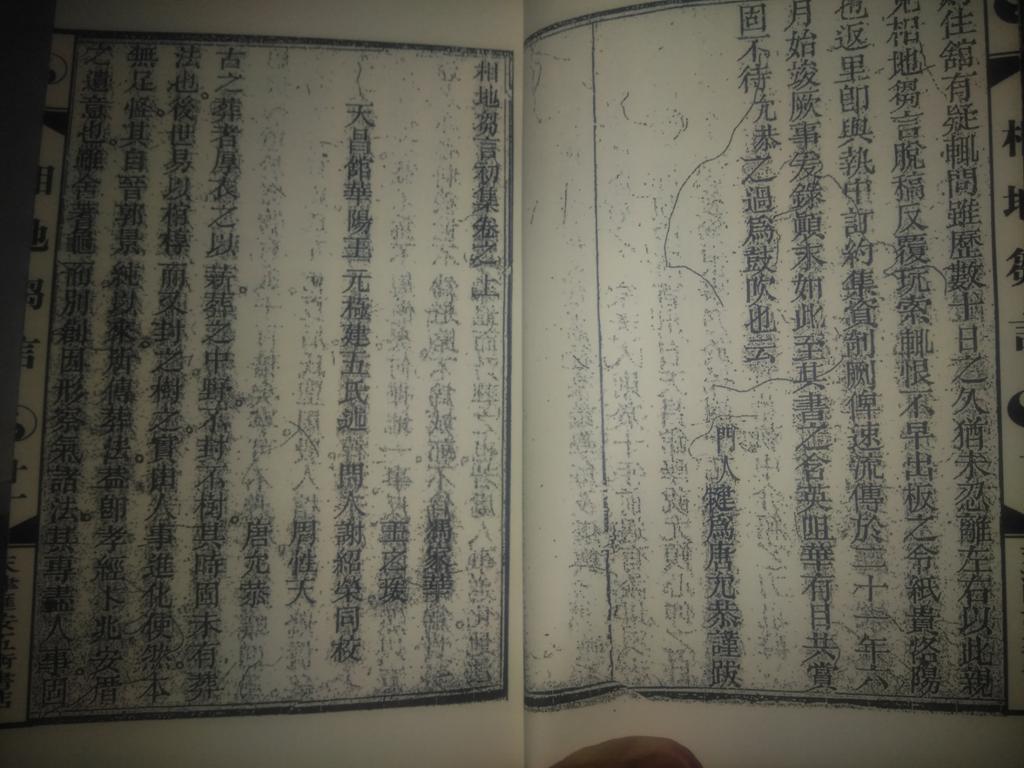 往舘有疑輒問雖歷數十日之久猶未忍離左右以此親
見相地芻言脫稿反覆玩索輒恨不早出板之令紙貴洛陽
也返里卽與執中訂約集資剞劂俾速流傳於三十一年六
月始竣厥事爰錄顚末如此至其書之含英咀華有目共賞
固不待允恭之過爲鼓吹也云
門人犍爲唐允恭謹跋
相地芻言初集卷之上
王之埃
天昌館華陽王元極建五氏述 門人謝紹榮同校
周性大
唐允恭
古之葬者厚衣之以薪葬之中野不封不樹其時固未有葬
法也後世易以棺槨而又封之樹之實由人事進化使然本
無足怪其自晉郭景純以來所傳葬法蓋卽孝經卜兆安厝
之遺意也雖舍蓍龜而別創因形察氣諸法其專盡人事固